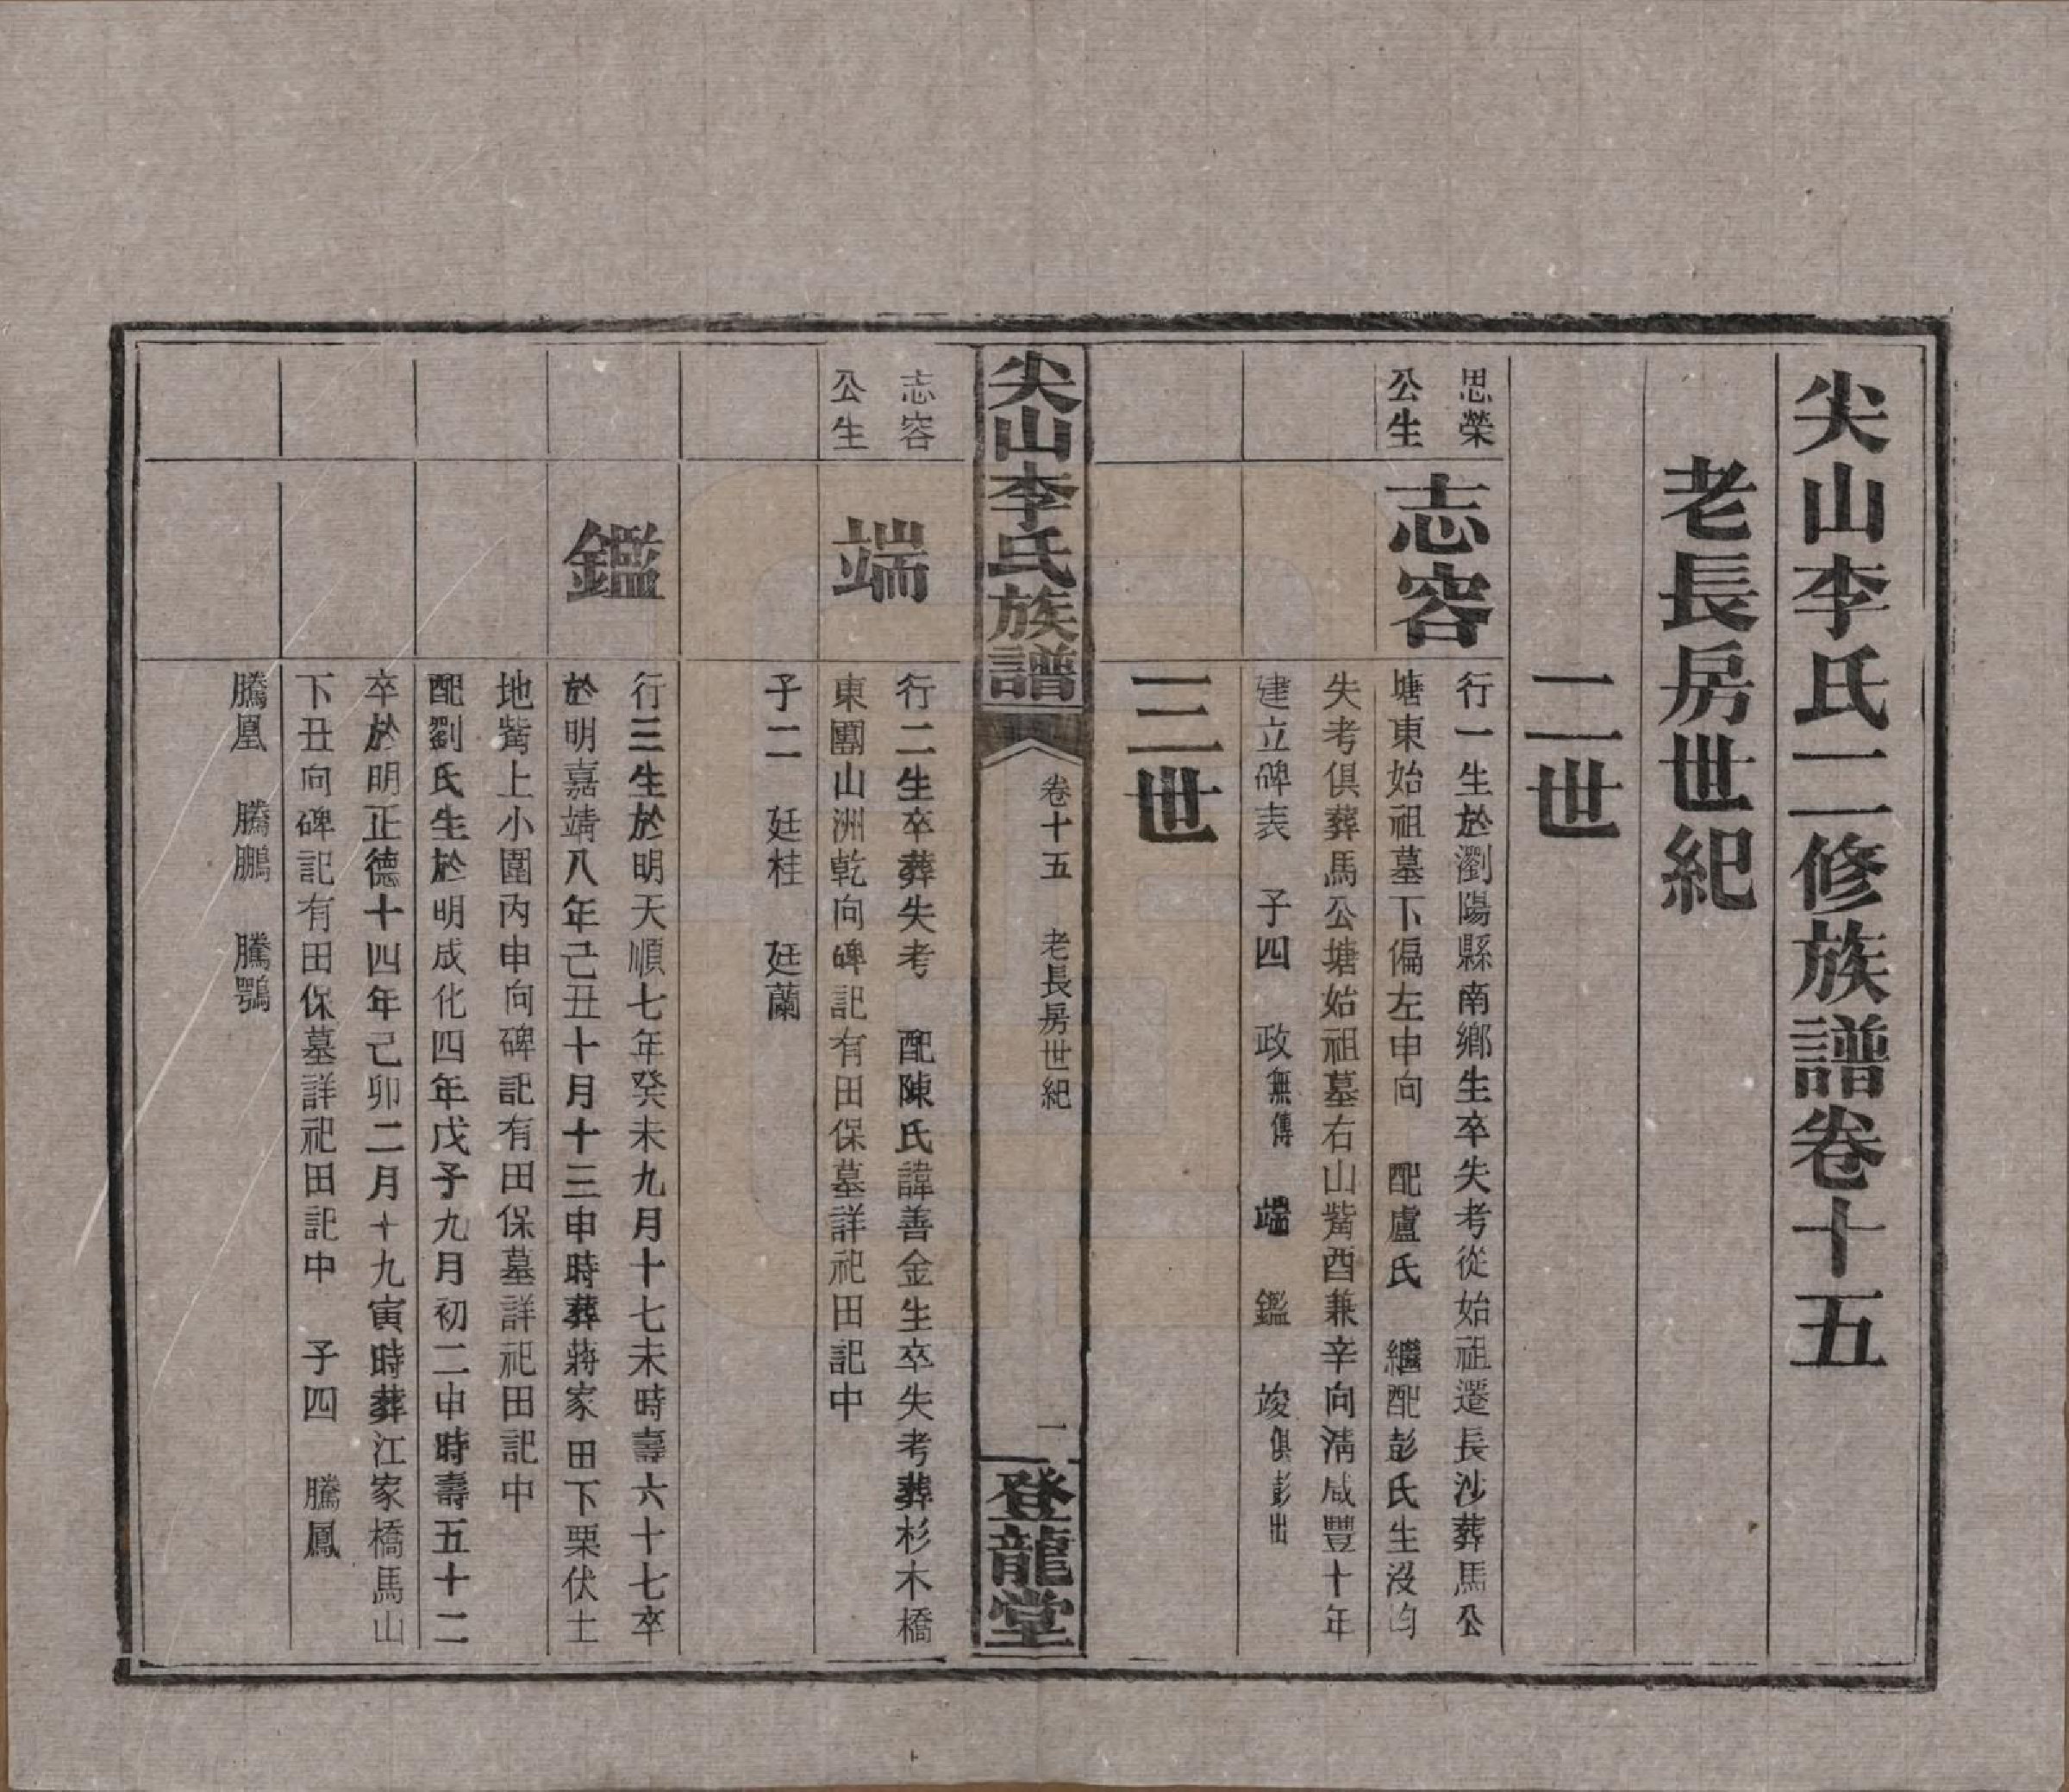 尖山李氏二修族譜卷十五
老長房世紀
二世
思榮
公生
志容
行一生於瀏陽縣南鄉生卒失考從始祖遷長沙葬馬公
塘東始祖墓下偏左申向 配盧氏 繼配彭氏生没均
失考俱葬馬公塘始祖墓右山觜酉兼辛向淸咸豐十年
建立碑表 子四 政無傳 端 鑑 竣俱彭出
三世
尖山李氏族譜 卷十五 老長房世紀 一 登龍堂
志容
公生
端
行二生卒葬失考 配陳氏諱善金生卒失考葬杉木橋
東團山洲乾向碑記有田保墓詳祀田記中
子二 廷桂 廷蘭
鑑
行三生於明天順七年癸未九月十七未時壽六十七卒
於明嘉靖八年己丑十月十三申時葬蔣家田下栗伏土
地觜上小圍内申向碑記有田保墓詳祀田記中
配劉氏生於明成化四年戊子九月初二申時壽五十二
卒於明正德十四年己卯二月十九寅時葬江家橋馬山
下丑向碑記有田保墓詳祀田記中 子四 騰鳳
騰凰 騰鵬 騰鶚